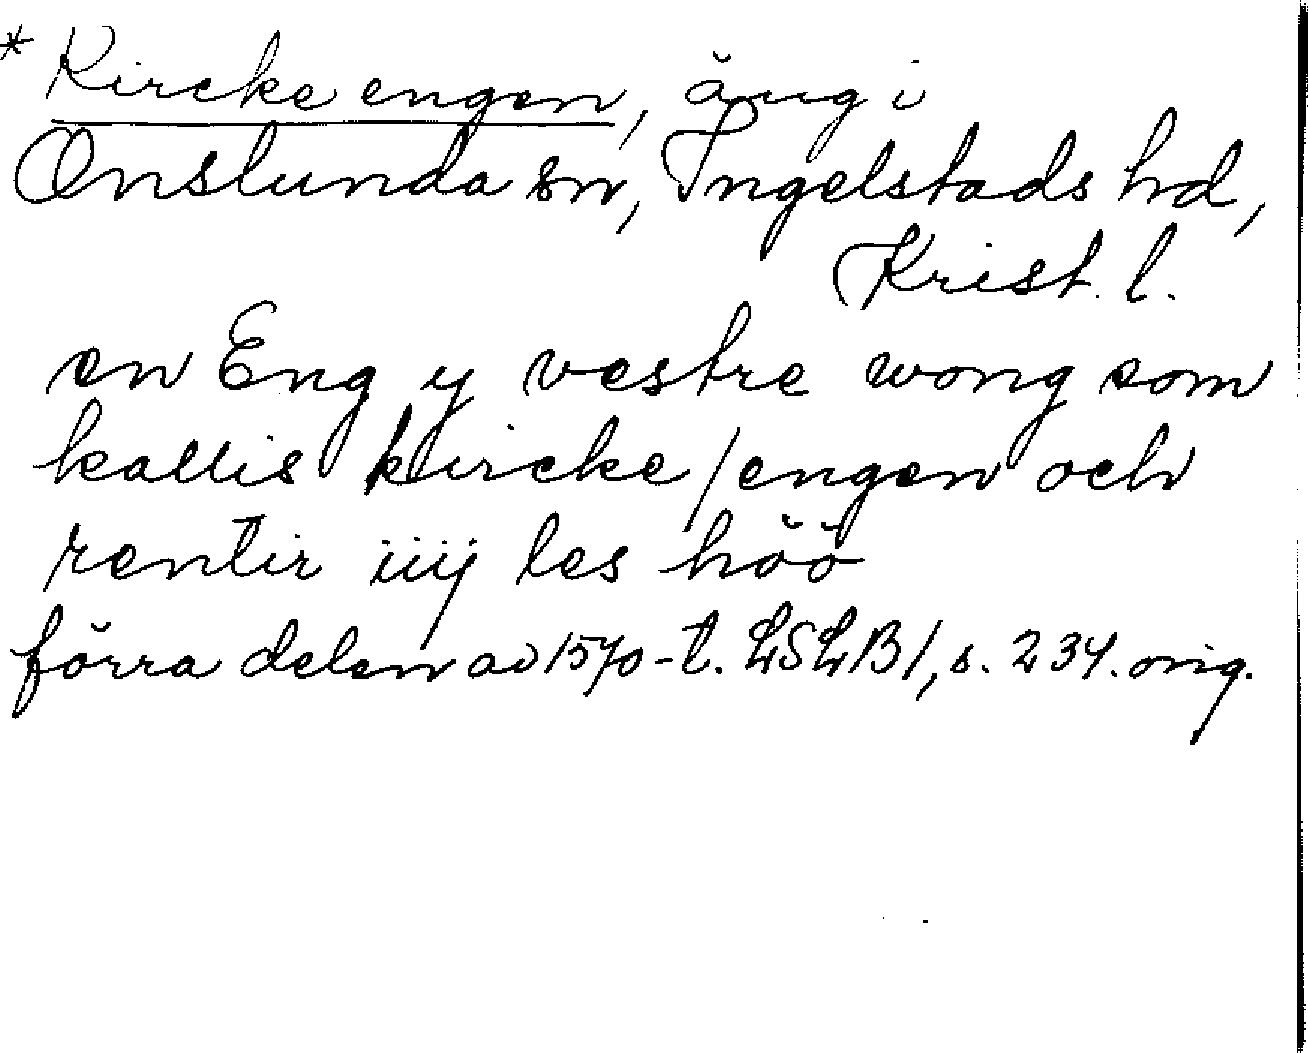 * Kircke engen, äng i
Onslunda sn, Ingelstads hd,
Krist. l.
en Eng y vestre wong som
kallis kircke/engen och
rentir iiij les höö
förra delen av 1570-t. LSLB1, s. 234. orig.